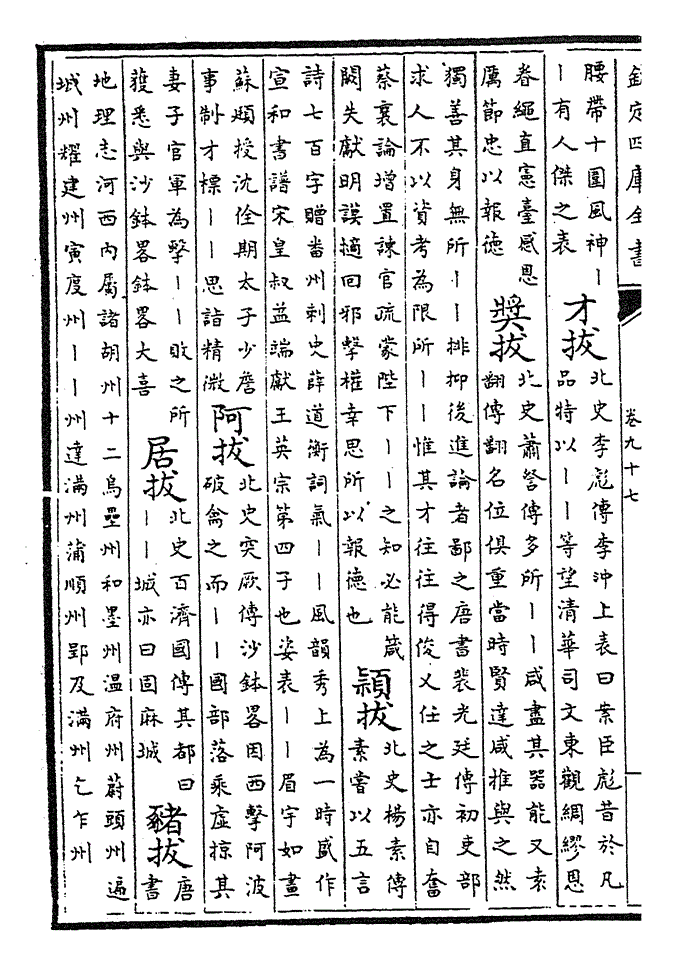 欽定四庫全書
卷九十七
一
腰帶十圍風神丨
丨有人傑之表
才拔
北史李彪傳李沖上表曰案臣彪昔於凡
品特以丨丨等望清華司文東觀綢繆恩
眷繩直憲臺感恩
厲節忠以報德
獎拔
北史蕭詧傳多所丨丨咸盡其器能又袁
翻傳翻名位俱重當時賢達咸推與之然
獨善其身無所丨丨排抑後進論者鄙之唐書裴光廷傳初吏部
求人不以資考為限所丨丨惟其才往往得俊乂任之士亦自奮
蔡襄論增置諫官疏蒙陛下丨丨之知必能箴
闕失獻明謨擿回邪擊權幸思所以報德也
穎拔
北史楊素傳
素嘗以五言
詩七百字贈番州刺史薛道衡詞氣丨丨風韻秀上為一時盛作
宣和書譜宋皇叔益端獻王英宗第四子也姿表丨丨眉宇如畫
蘇頲授沈佺期太子少詹
事制才標丨丨思詣精微
阿拔
北史突厥傳沙鉢畧因西擊阿波
破禽之而丨丨國部落乘虛掠其
妻子官軍為擊丨丨敗之所
獲悉與沙鉢畧鉢畧大喜
居拔
北史百濟國傳其都曰
丨丨城亦曰固麻城
豬拔
唐
書
地理志河西內屬諸胡州十二烏壘州和墨州温府州蔚頭州遍
城州耀建州寅度州丨丨州達滿州蒲順州郢及滿州乞乍州